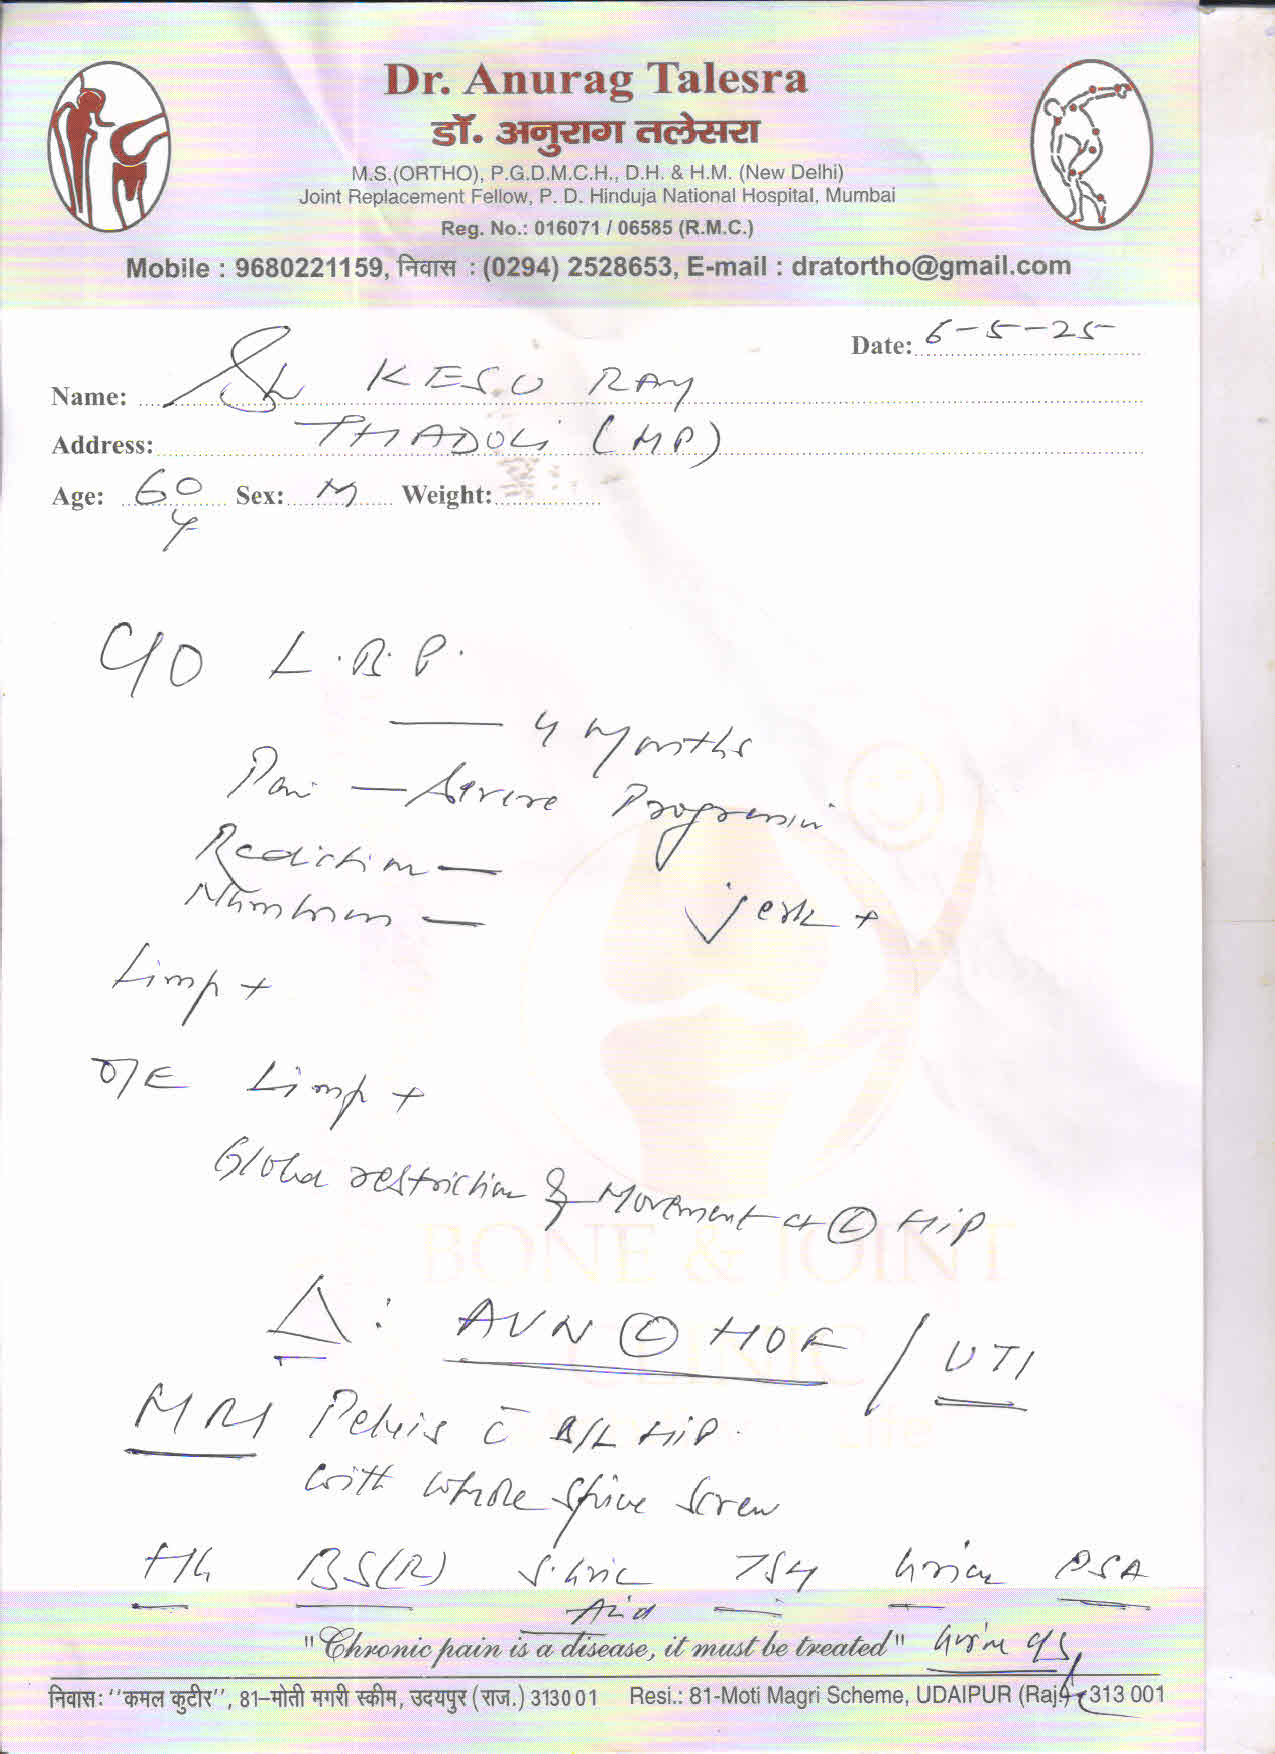 Dr. Anurag Talesra
डॉ. अनुराग तलेसरा
M.S.(ORTHO), P.G.D.M.C.H., D.H. & H.M. (New Delhi)
Joint Replacement Fellow, P. D. Hinduja National Hospital, Mumbai
Reg. No.: 016071 / 06585 (R.M.C.)
Mobile : 9680221159, निवास : (0294) 2528653, E-mail : dratortho@gmail.com
Date: 6-5-25
Name: Sh KESU RAY
Address: THADOLi (MP)
Age: 60 Sex: M Weight:
y
C/O L.B.P.
— 4 Months
Pain — Severe Progressive
Radiation —
Numbness — jerk +
Limp +
O/E Limp +
Global restriction of Movement at (L) HiP
BONE & JOINT
CLINIC
Life
Δ : AVN (L) HOF / UTI
MRI Pelvis c̄ B/L HiP.
with whole Spine Screen
Hb BS(R) S. Uric TSH Urine PSA
Acid
"Chronic pain is a disease, it must be treated" Urine c/s
निवास: ''कमल कुटीर'', 81-मोती मगरी स्कीम, उदयपुर (राज.) 313001 Resi.: 81-Moti Magri Scheme, UDAIPUR (Raj.) 313 001